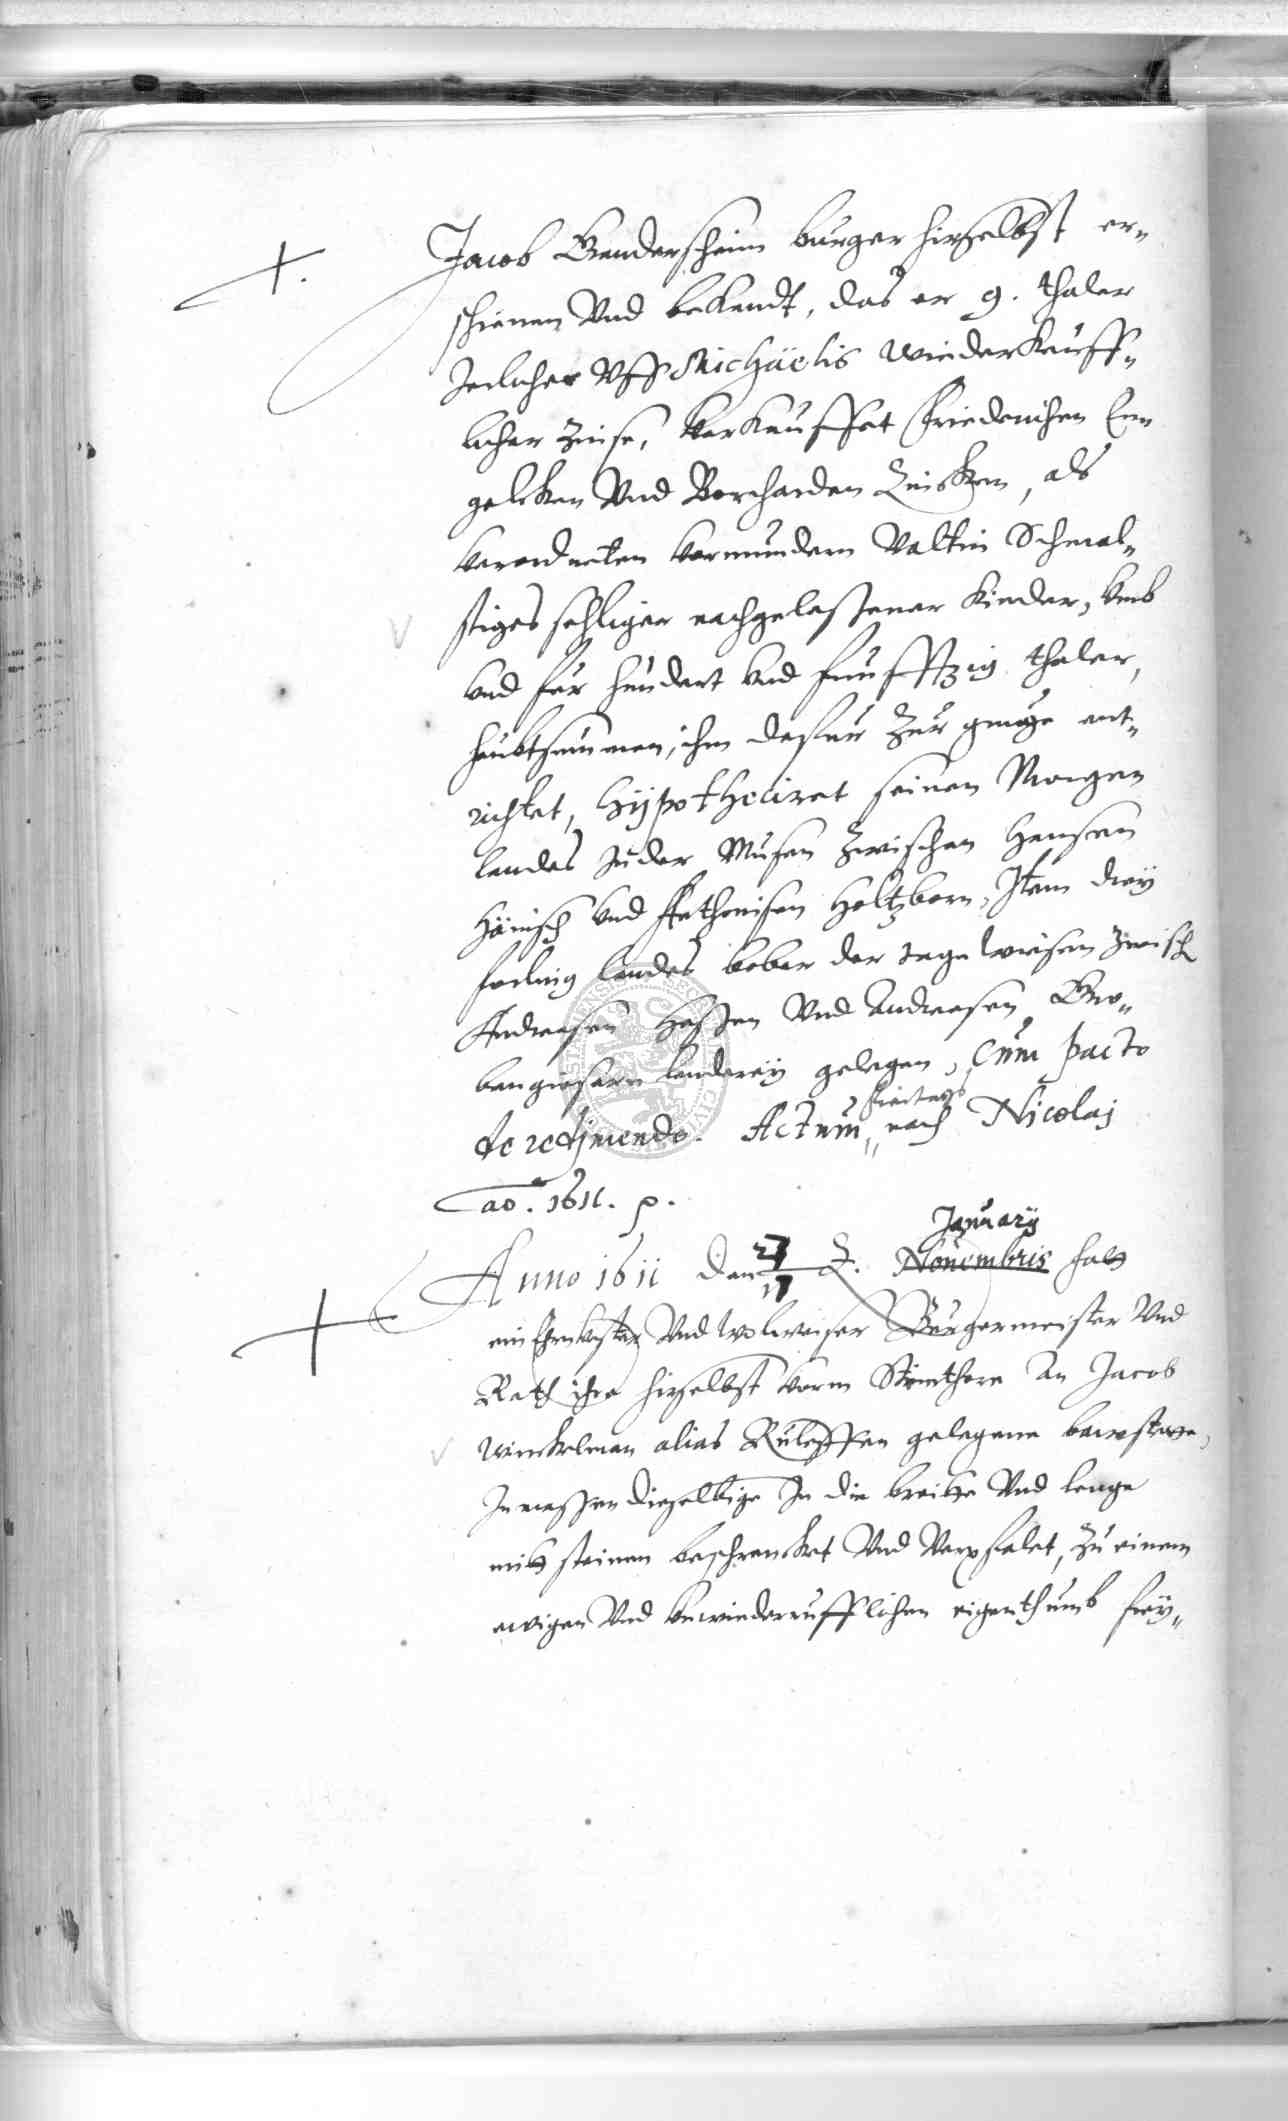 Jacob Gandersheim burger hirselbst er„
schienen Vnd bekandt, das er 9. thaler
Jerlicher Vff Michäelis wiederkeuff„
licher Zinse, verkauffet Friederichen En„
gelken Vnd Borcharden Zeisken, als
verordneten vormundern Valtin Schmal„
stiges sehliger nachgelaßener Kinder, vmb
vnd für hundert vnd funfftzig thaler,
heubtsummen, ihm dafur zur gnuge ent„
richtet, Hÿpotheciret seinen Morgen
landes In der Masen zwischen Hansen
Hänisch vnd Anthonisen Holtzborn, Item dreÿ
forling landes bober der wiesen zwisch
Andreasen Haßen Vnd Andreasen Gro„
pengiesern landereÿ gelegen, Cum pacto
de redimendo. Actum „ freitags nach Nicolaj
ao. 1611. p.
Anno 1611 den 27/17 Januarÿ Nouembris hatt
ein Ehrnvester Vnd Wolweiser Bürgermeister Vnd
Rath ihre hirselbst vorm Steinthore An Jacob
Winckelman alias Rüleffen gelegene bawstette,
Inmaßen dieselbige In die breitte Vnd lenge
mitt steinen beschrencket Vnd Verpfalet, zu einem
ewigen Vnd vnwiederrufflichen eigenthumb freÿ„